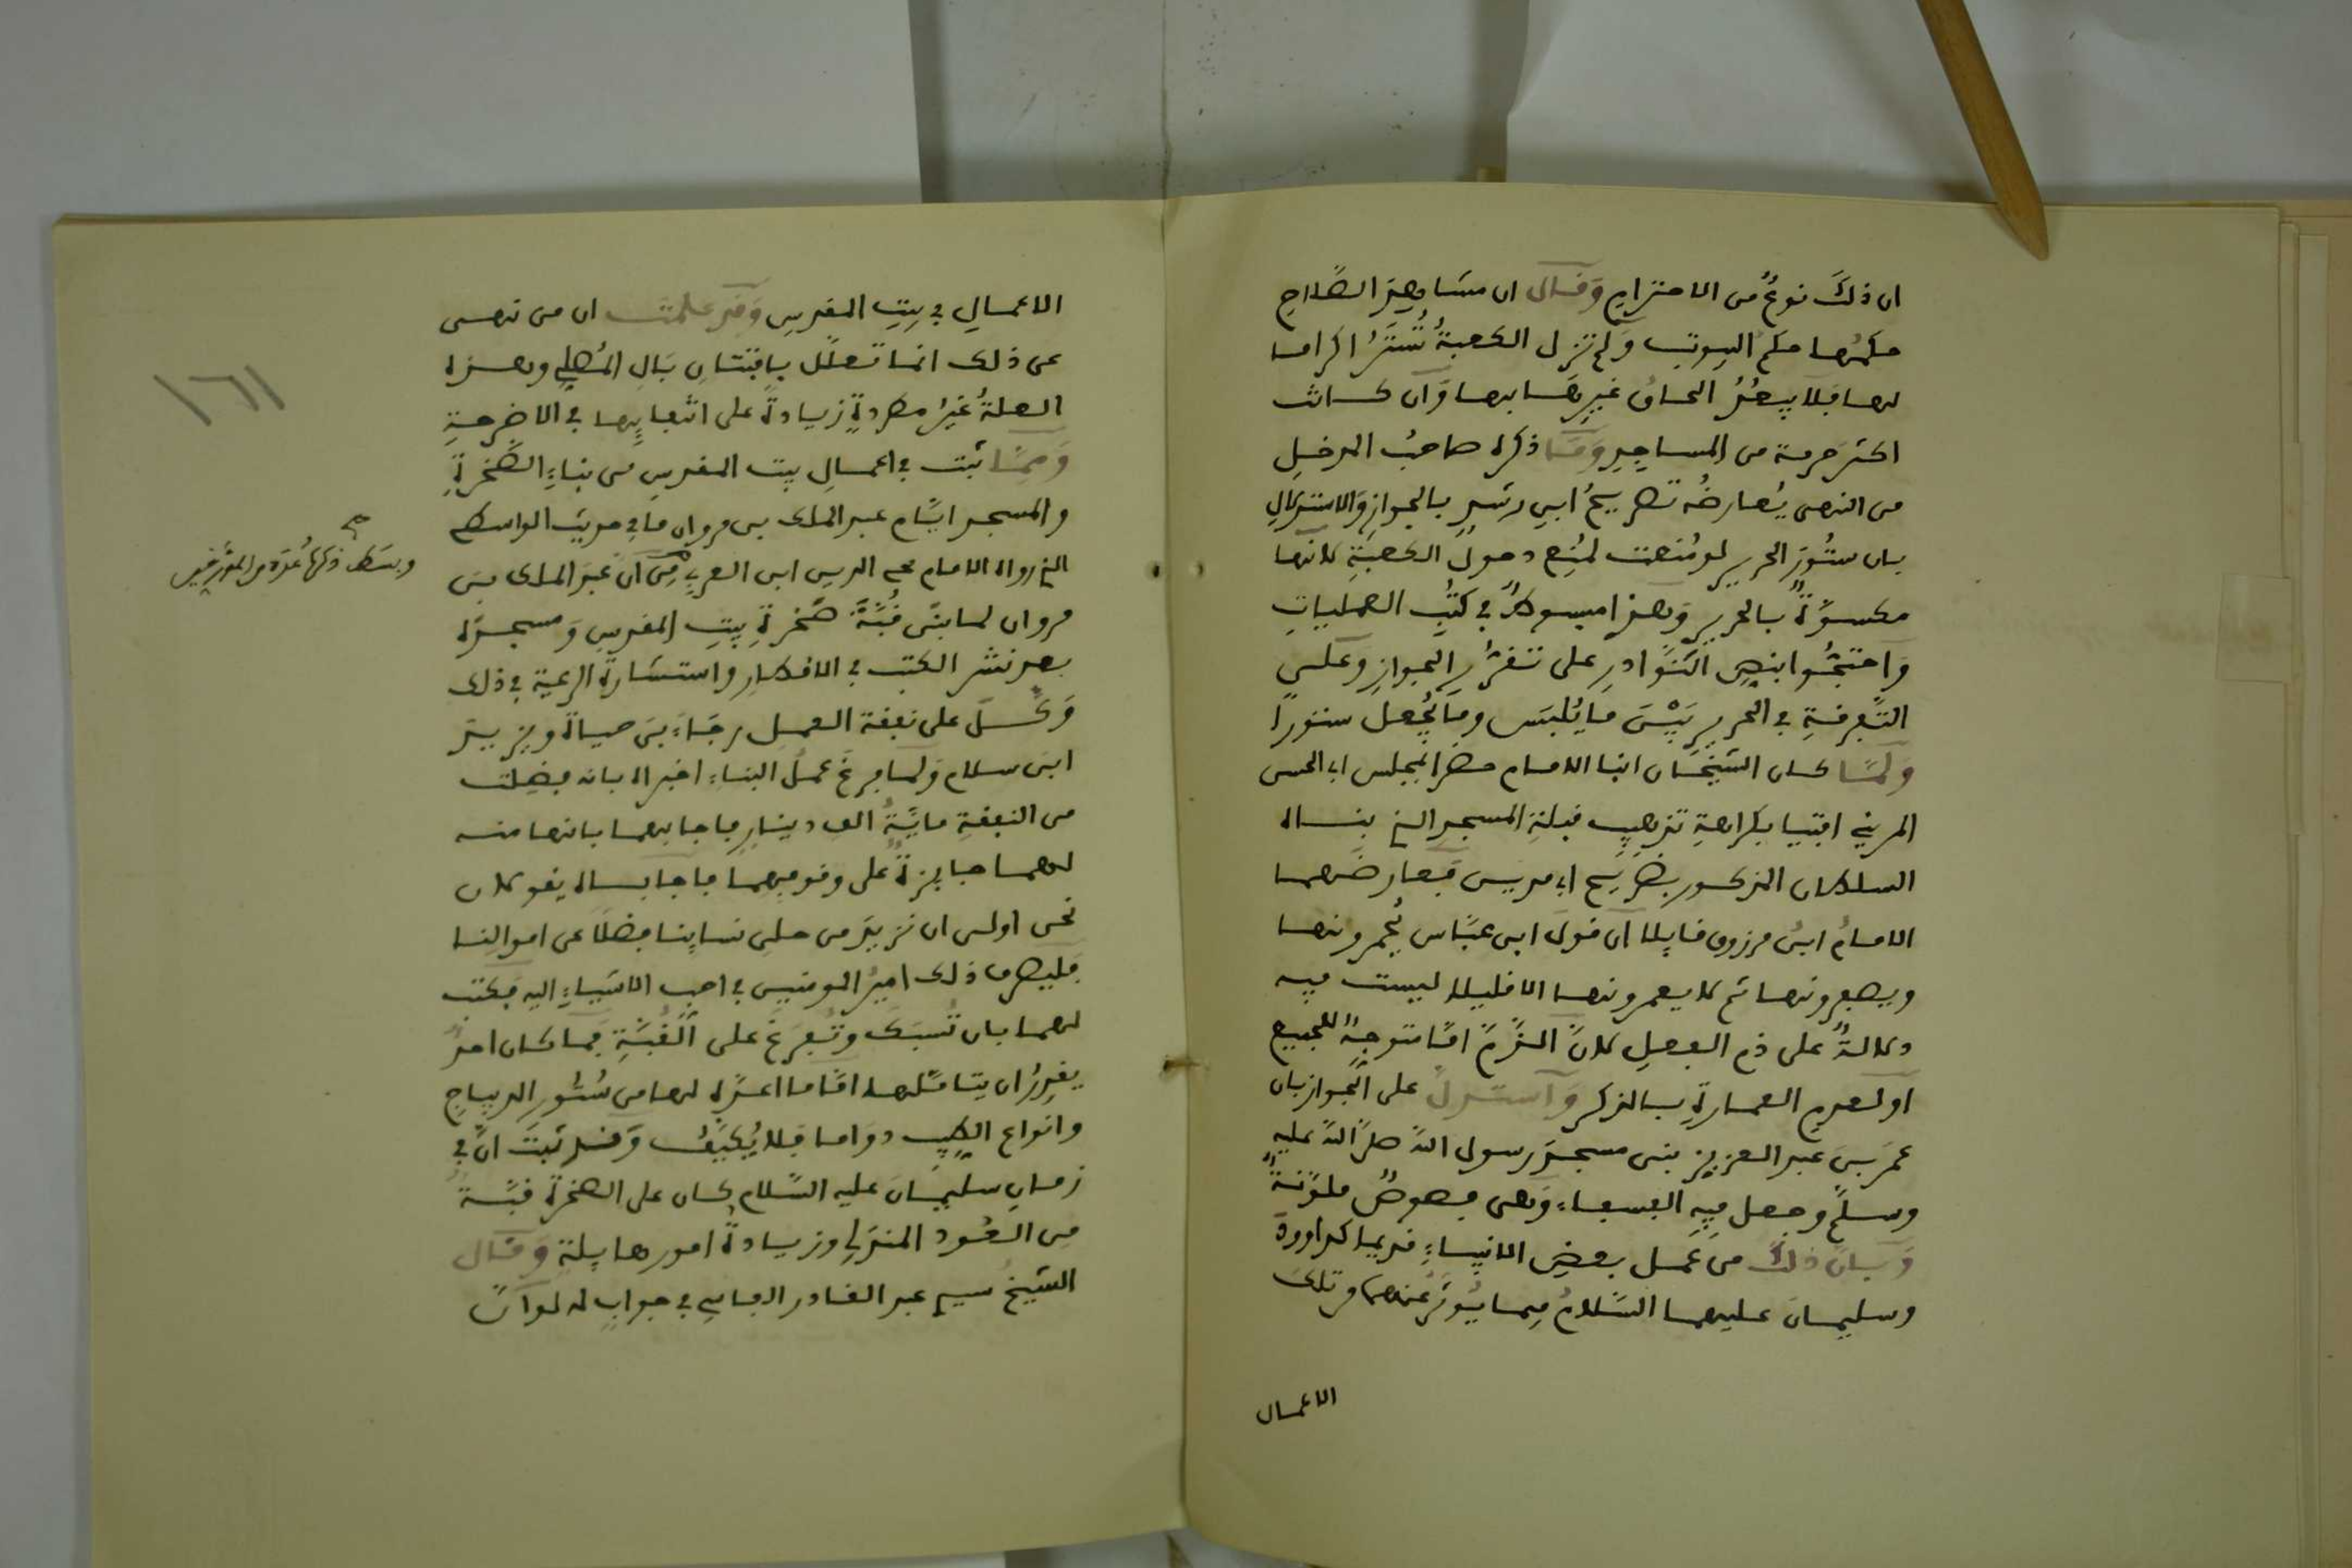 ان ذلك نوعٌ من الاحترام وَقال ان مشاهدَ الصّلاح
حكمُها حكم البيوت وَلم تزل الكعبةُ تُسترُ اكراما
لها فلا يبعُدُ الحاقُ غيرِها بها وَان كانت
اكثر حرمة من المساجِدِ وَمَا ذكره صاحبُ المدخلِ
من النهى يُعارضُه تصريحُ ابى رشدٍ بالجوازِ وَالاستدلالِ
بان ستُورَ الحرير لو مُنعت لمُنِع دخولُ الكعبةِ لانها
مكسوّةٌ بالحرير وَهذا مبسوطٌ في كتُب العمليات
وَاحتجُّوا بنصِ النّوادرِ على تقرُّرِ الجوازِ وَعلى
التَّفرقةِ في الحريرِ بَيْنَ ما يُلبَس وما يُجعل ستورًا
وَلمَّا كان الشيخان ابنا الامام حضرا بمجلس ابى الحسن
المرينى افتيا بكراهةِ تذهيب قبلةِ المسجد الذي بناه
السلطان المذكور بضريح ابى مدين فعارضهما
الامامُ ابنُ مرزوق قايلا ان قولَ ابن عبّاس يُحمرونها
ويصفرونها ثم لا يعمرونها الا قليلا ليست فيه
دلالةٌ على ذم الفعلِ لانَّ الذَّمّ امّا متوجهٌ للجميع
او لعدم العمارةِ بالذكر وَاستدلَّ على الجواز بان
عمَر بنَ عبد العزيز بنى مسجدَ رسول اللهِ صلَّى اللهُ عليه
وسلمَّ وجعل فيهِ الفسيفساء وَهى فصوصٌ ملوّنةٌ
وَبانّ ذلكَ من عمل بعضِ الانبياءِ قديما كداوودَ
وسليمانَ عليهما السَّلامُ فيما يُوثرُ عنهما من تلك
الاعمال
الاعمالِ في بيتِ المقدسِ وَقد علمتَ ان من نهى
عن ذلك انما تعلَّل بافتتانِ بَالِ المُصلِي وهذه
العلةُ غيرُ مطردةٍ زيادةً على انتفايِها في الاضرحةِ
وَممّا ثبت في اعمالِ بيت المقدسِ من بناءِ الصَّخرةِ
والمسجد ايّام عبد الملك بن مروان ما في حديث الواسطى
الذي رواه الامام محي الدين ابن العربى من انّ عبدَ الملك بنَ
وبسَط ذكرَها عُدّة من المؤرّخين صح
مروان لما بنَى قُبَّةَ صَّخرةِ بيتِ المقدسِ وَمسجدَه
بعد نشر الكتب في الاقطارِ واستشارة الرعية في ذلك
وَكَّلَ على نفقة العمل رجَاءَ بنَ حياة ويزيدَ
ابنَ سلام وَلما فرغَ عملُ البناء اخبراه بانه فضِلت
من النفقةِ مايَةُ الف دينارٍ فاجابهما بانها منه
لهما جايزةٌ على وقوفِهما فاجاباه يقولان
نحن اولى ان نزيدَ من حلى نساينا فضلًا عن اموالِنا
فليصرف ذلك اميرُ المومنين في احب الاشياءِ اليه فكتب
لهما بان تُسبَك وتُفرَغ على القُبّةِ فما كان احدٌ
يقدِرُ ان يتامّلها امّا ما اعدَّه لها من سُتُور الديباجِ
وانواع الطِيب دوَاما فلا يُكيَّفُ وَقد ثبتَ انَّ في
زمانِ سليمانَ عليه السّلام كان على الصخرة قبّةٌ
من العُود المندَلى وزيادةُ امور هايلة وَقال
الشيخُ سيدى عبد القادر الفاسى في جوابٍ له لو انّ
١٦١